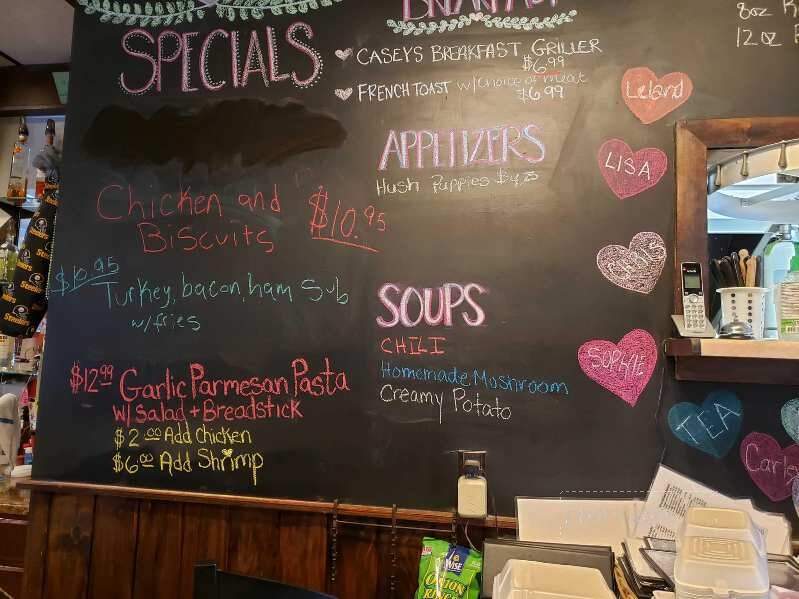 SPECIALS
BREAKFAST
CASEYS BREAKFAST GRILLER
$6.99
FRENCH TOAST w/choice of meat
$6.99
8oz
12 oz
APPITIZERS
Hush Puppies
Chicken and
Biscuits
$10.95
$10.95
Turkey, bacon, ham Sub
w/fries
$12.99 Garlic Parmesan Pasta
w/ Salad + Breadstick
$2.00 Add Chicken
$6.00 Add Shrimp
SOUPS
CHILI
Homemade Mushroom
Creamy Potato
Leland
LISA
CHRIS
SOPHIE
TEA
Steelers
WISE
ONION
RINGS